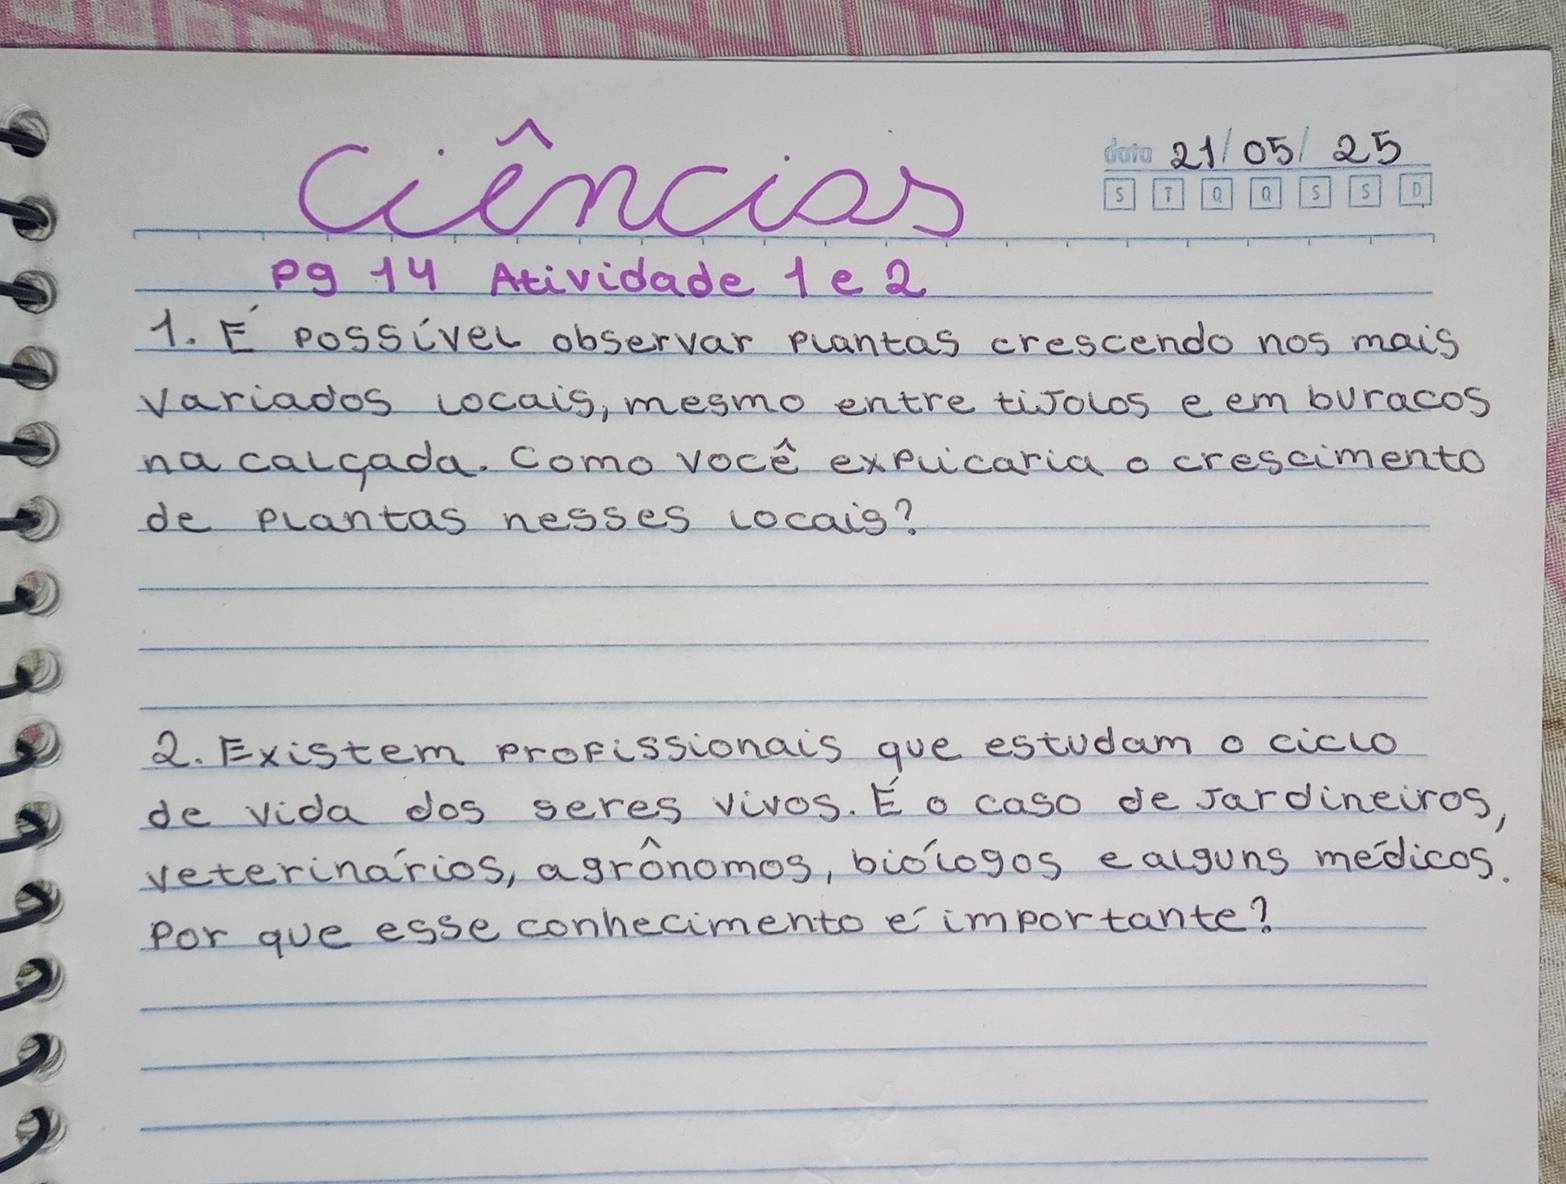 Ciências
data 21/05/25
S T Q Q S S D
Pg 14 Atividade 1 e 2
1. É possível observar plantas crescendo nos mais
variados locais, mesmo entre tijolos e em buracos
na calçada. Como você explicaria o crescimento
de plantas nesses locais?
2. Existem profissionais que estudam o ciclo
de vida dos seres vivos. É o caso de jardineiros,
veterinários, agrônomos, biólogos e alguns médicos.
Por que esse conhecimento é importante?